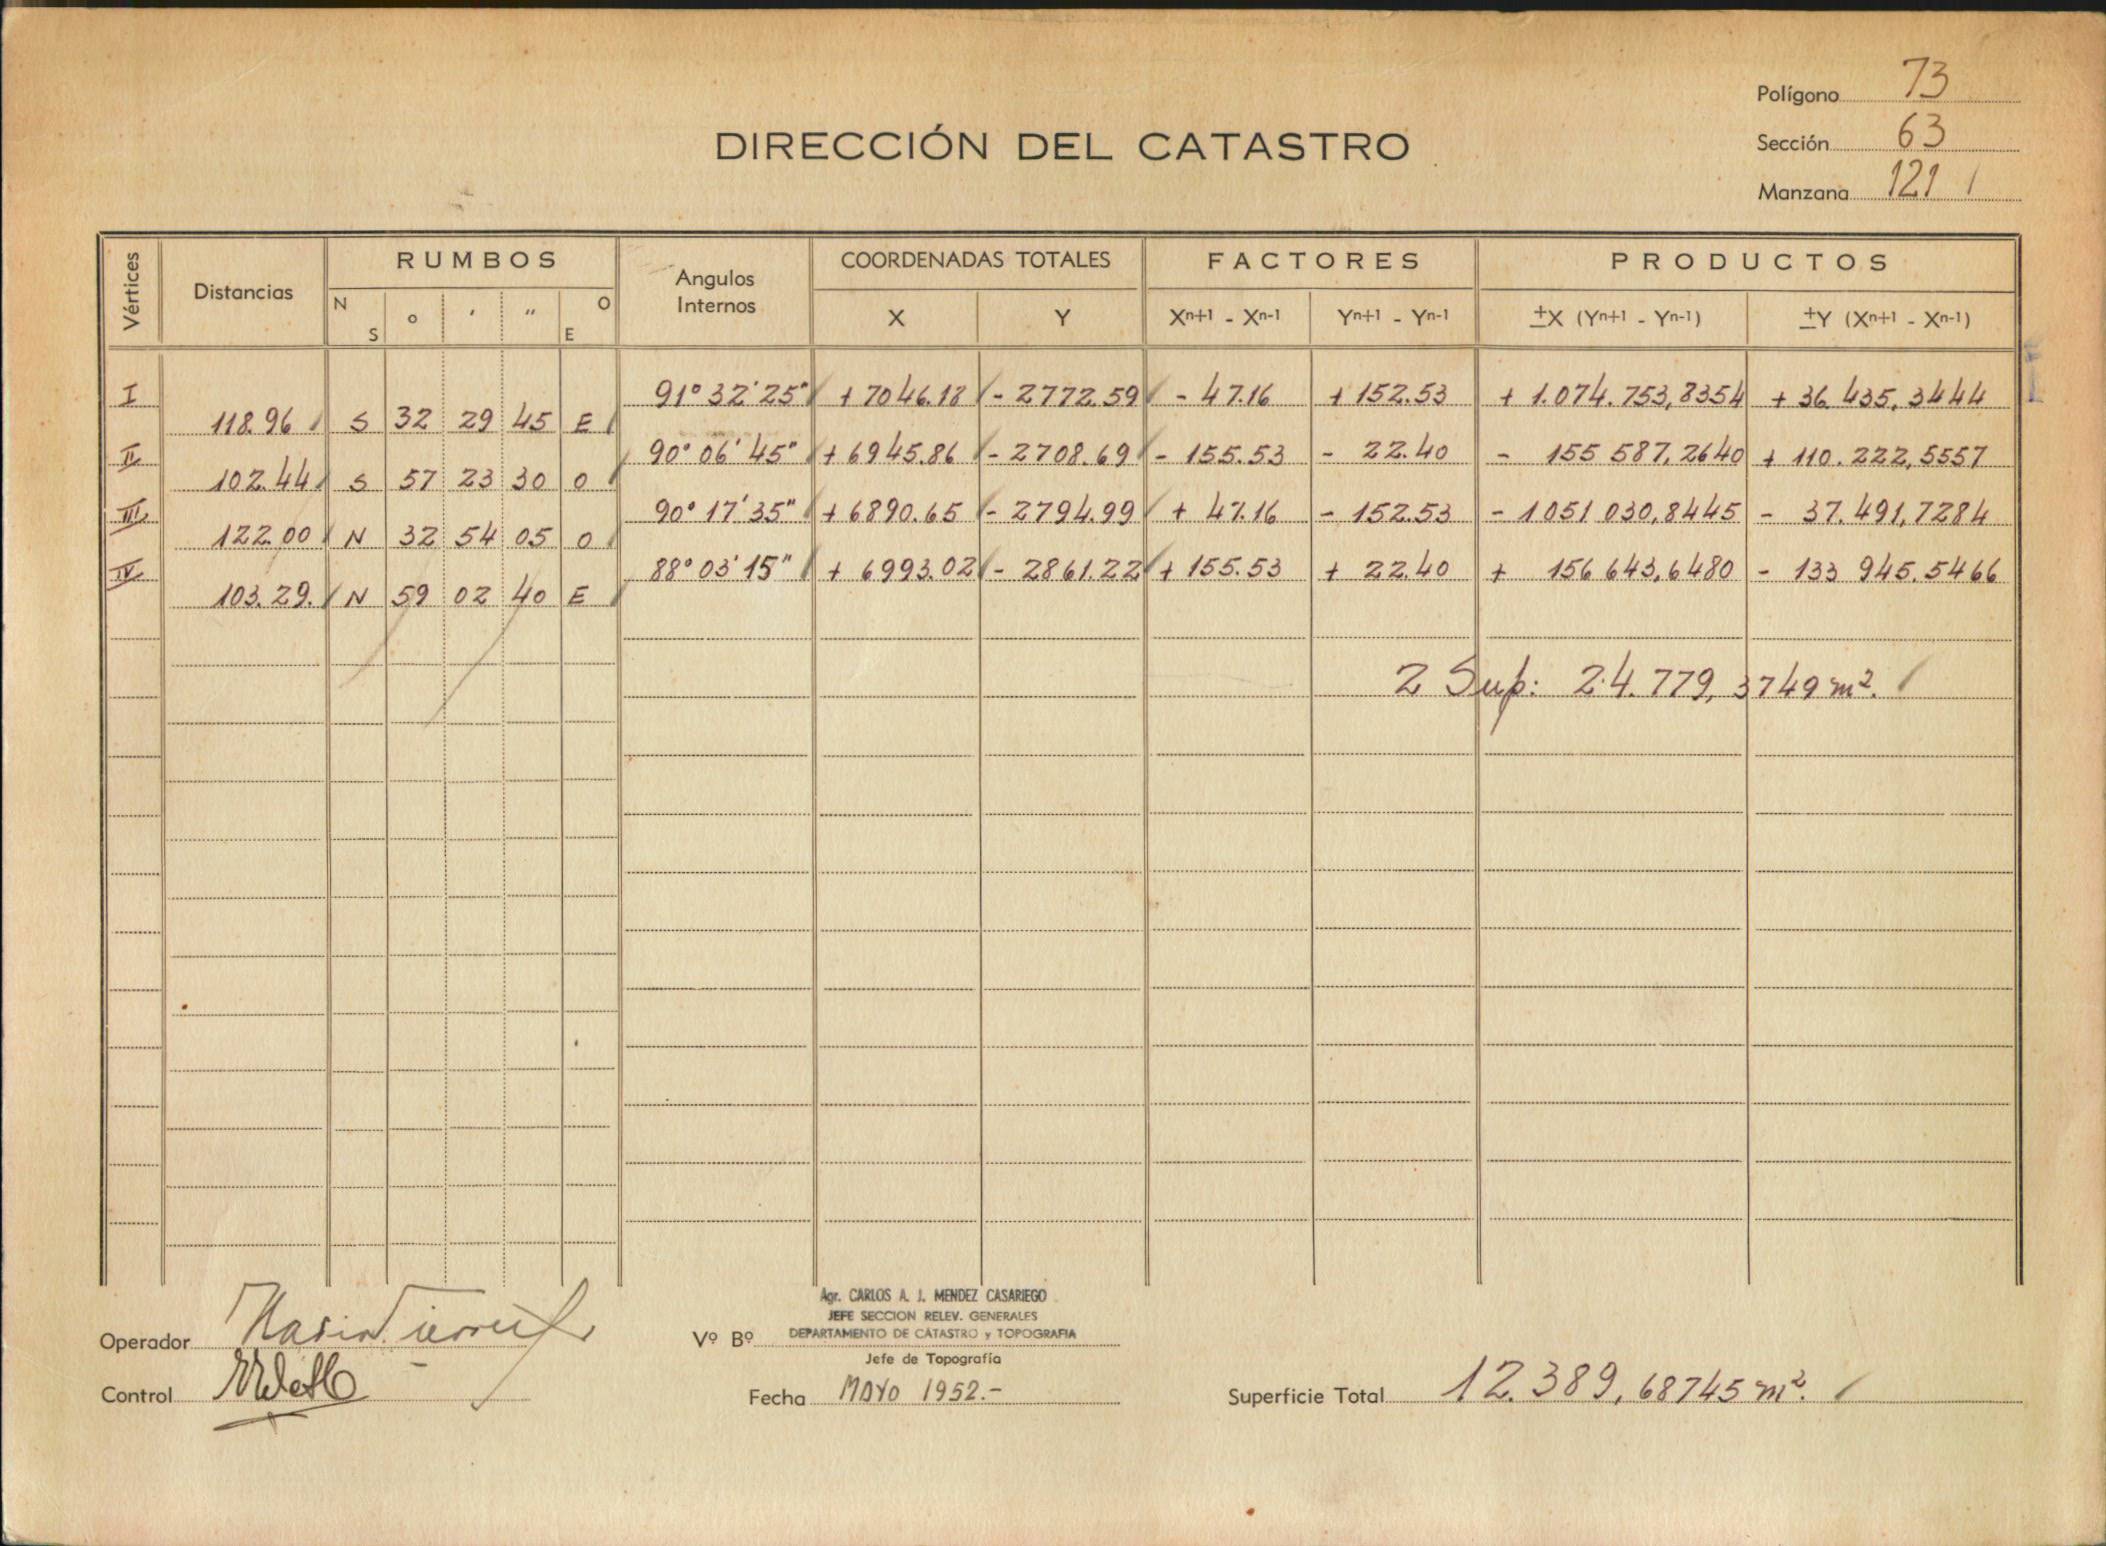 Polígono 73
DIRECCIÓN DEL CATASTRO
Sección 63
Manzana 121
Vértices Distancias RUMBOS Angulos Internos COORDENADAS TOTALES FACTORES PRODUCTOS
N S ° ' " O E X Y Xn+1 - Xn-1 Yn+1 - Yn-1 ±X (Yn+1 - Yn-1) ±Y (Xn+1 - Xn-1)
I 91° 32' 25" + 7046.18 - 2772.59 - 47.16 + 152.53 + 1.074.753,8354 + 36.435,3444
118.96 S 32 29 45 E
II 90° 06' 45" + 6945.86 - 2708.69 - 155.53 - 22.40 - 155 587,2640 + 110.222,5557
102.44 S 57 23 30 O
III 90° 17' 35" + 6890.65 - 2794.99 + 47.16 - 152.53 - 1051 030,8445 - 37.491,7284
122.00 N 32 54 05 O
IV 88° 03' 15" + 6993.02 - 2861.22 + 155.53 + 22.40 + 156 643,6480 - 133 945.5466
103.29. N 59 02 40 E
2 Sup: 24.779,3749 m².
Agr. CARLOS A. J. MENDEZ CASARIEGO
JEFE SECCION RELEV. GENERALES
Operador Vº Bº DEPARTAMENTO DE CATASTRO y TOPOGRAFIA
Jefe de Topografía
Control Fecha MAYO 1952.- Superficie Total 12.389,68745 m².